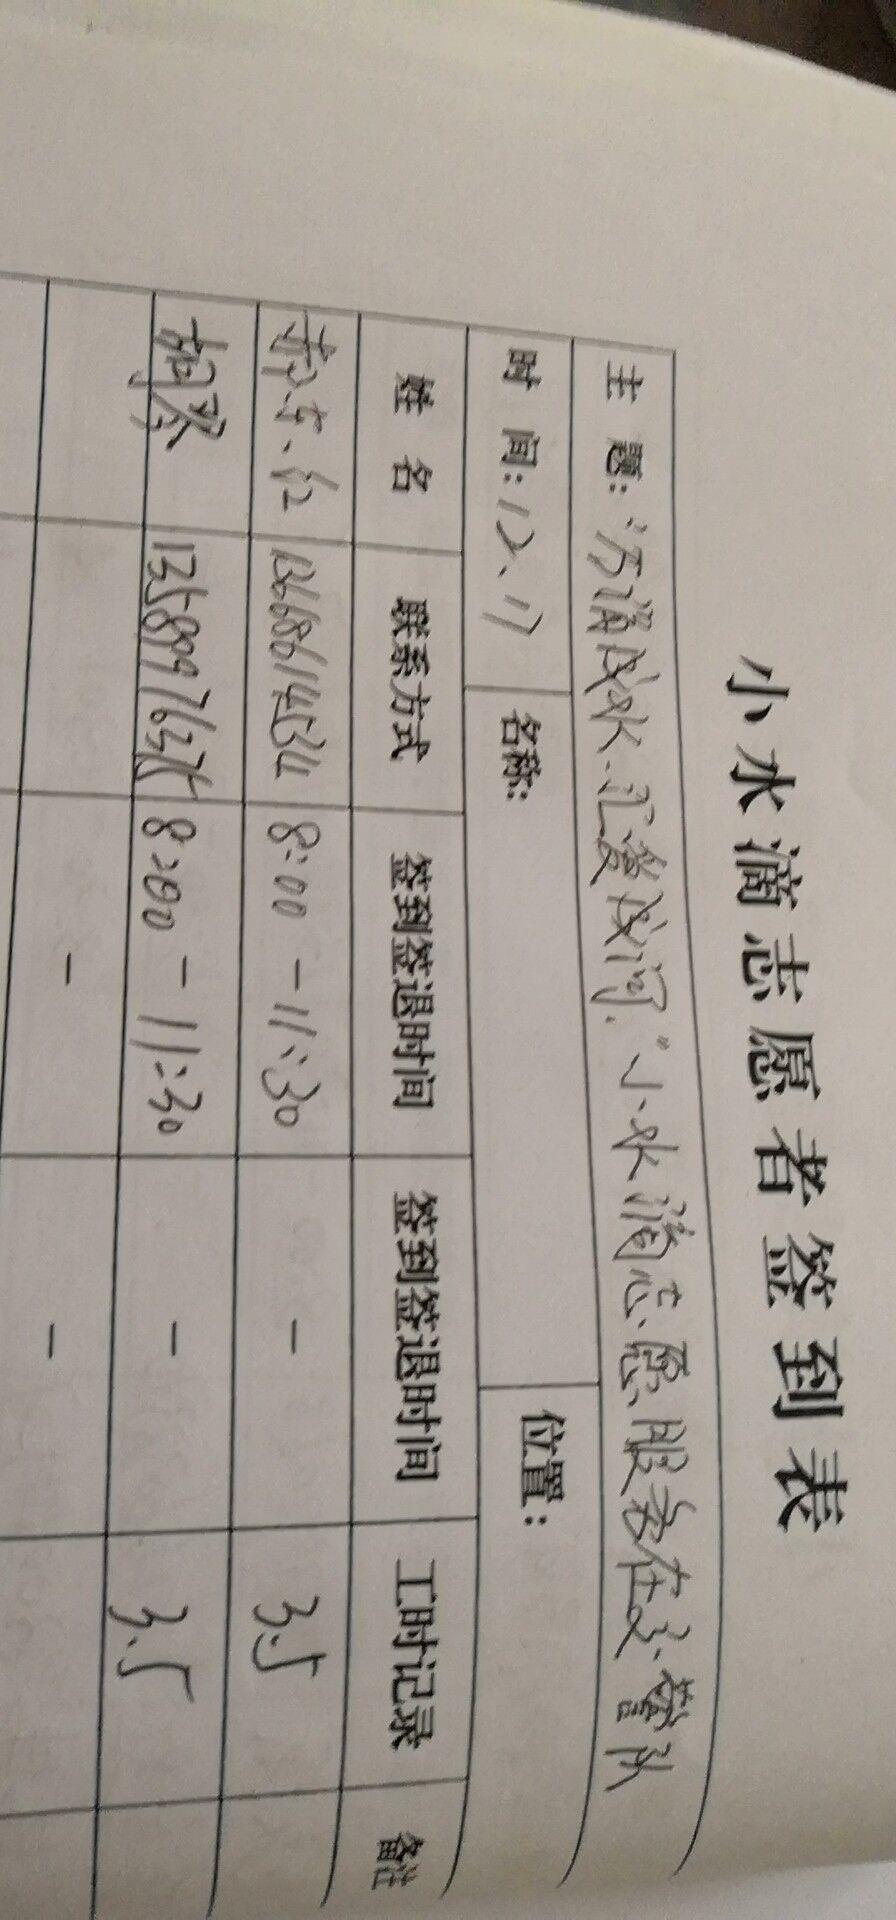 小水滴志愿者签到表
主 题: "万滴成水 汇爱成河" 小水滴志愿服务在交警队
时 间: 12.17 名称: 位置:
姓 名 联系方式 签到签退时间 签到签退时间 工时记录 备注
郝东红 13668614534 8:00 - 11:30 - 3.5
胡登 13589976375 8:00 - 11:30 - 3.5
- -